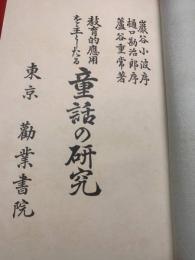 巖谷小波序
樋口勘治郎序
蘆谷重常著
教育的應用
を主としたる
童話の研究
東京 勸業書院